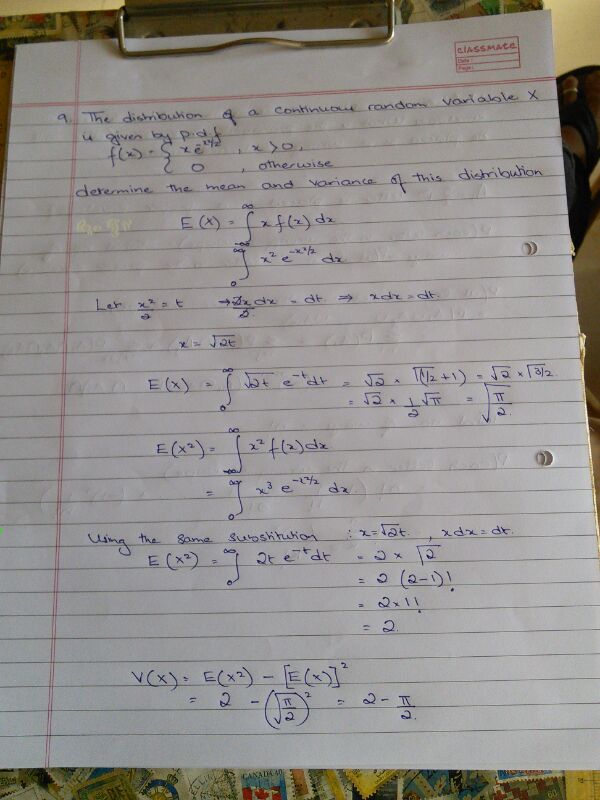 classmate
Date :
Page :
9. The distribution of a continuous random variable X
is given by p.d.f
f(x) = { x e^{-x²/2} , x > 0,
0 , otherwise
determine the mean and variance of this distribution
E(X) = ∫_{-∞}^{∞} x f(x) dx
∫_0^∞ x² e^{-x²/2} dx
Let x²/2 = t → 2x/2 dx = dt ⇒ x dx = dt.
x = √2t
E(X) = ∫_0^∞ √2t e^{-t} dt = √2 × Γ(1/2 + 1) = √2 × Γ3/2.
= √2 × 1/2 √π = √(π/2)
E(X²) = ∫_{-∞}^{∞} x² f(x) dx
= ∫_0^∞ x³ e^{-x²/2} dx
Using the same substitution : x = √2t. , x dx = dt.
E(X²) = ∫_0^∞ 2t e^{-t} dt = 2 × Γ2
= 2 (2-1)!
= 2×1!
= 2.
V(X) = E(X²) - [E(X)]²
= 2 - (√(π/2))² = 2 - π/2.
CANADA